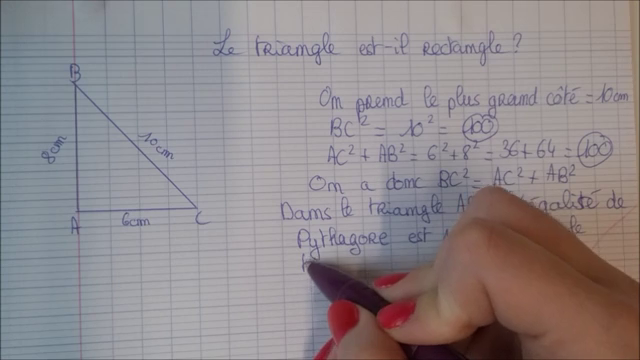 Le triangle est-il rectangle ?
B
8cm
10cm
A
6cm
C
On prend le plus grand côté = 10cm
BC² = 10² = 100
AC² + AB² = 6² + 8² = 36 + 64 = 100
On a donc BC² = AC² + AB²
Dans le triangle égalité de
Pythagore est le